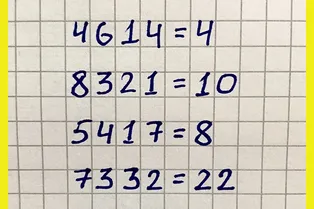 4614=4
8321=10
5417=8
7332=22